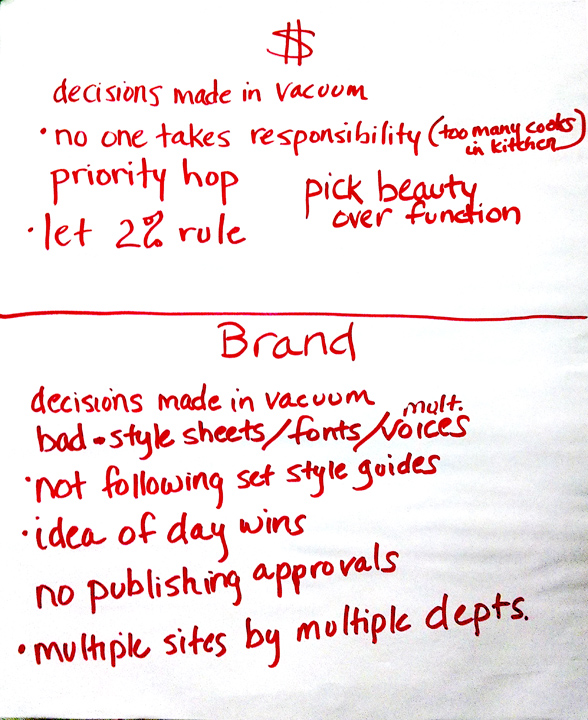 $
decisions made in vacuum
• no one takes responsibility (too many cooks in kitchen)
priority hop
pick beauty over function
• let 2% rule
Brand
decisions made in vacuum
bad - style sheets/fonts/mult. voices
• not following set style guides
• idea of day wins
no publishing approvals
• multiple sites by multiple depts.